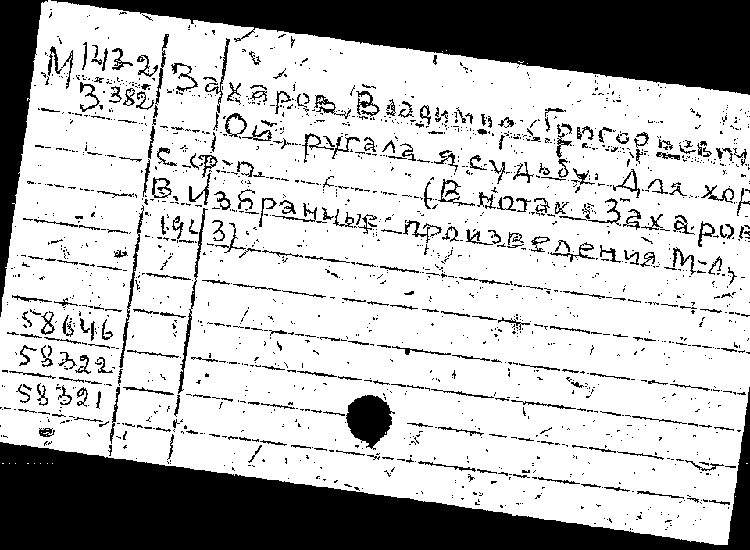 М 143-2
З-382
Захаров, Владимир Григорьевич
Ой, ругала я судьбу. Для хор
с ф-п. (В нотах: Захаров
В. Избранные произведения М-Л,
1943)
58646
58322
58321